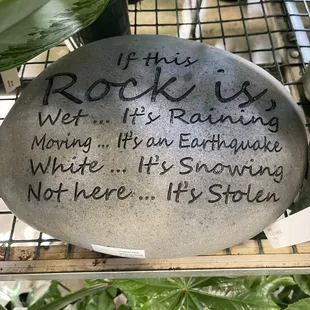 If this
Rock is,
Wet ... It's Raining
Moving ... It's an Earthquake
White ... It's Snowing
Not here ... It's Stolen